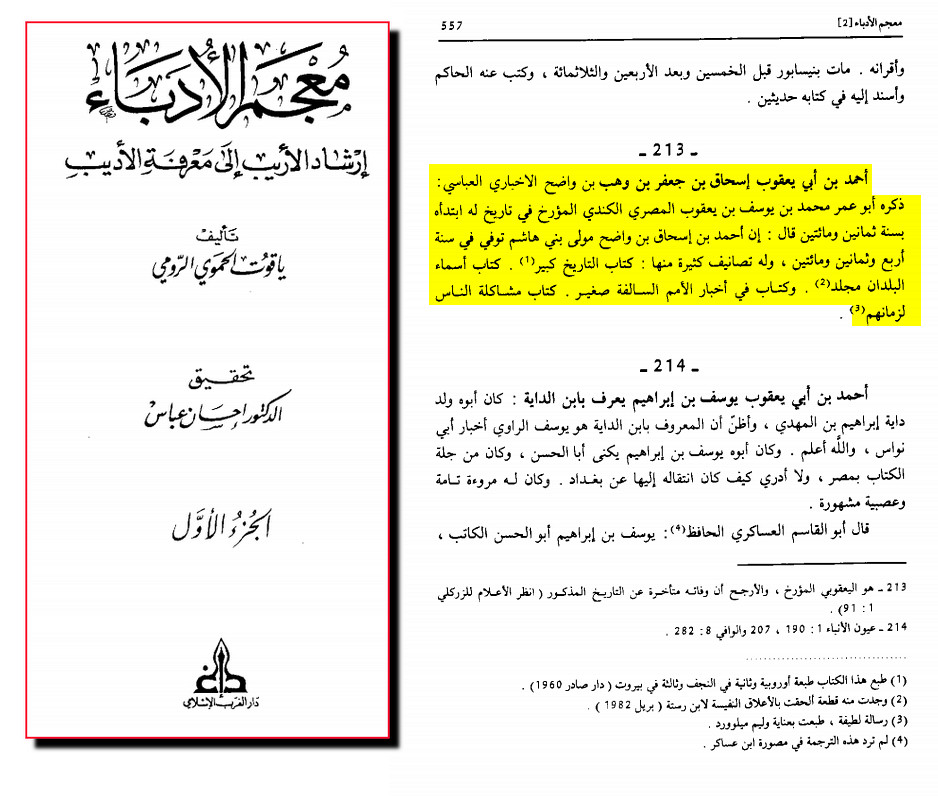 معجم الأدباء [2]
557
وأقرانه . مات بنيسابور قبل الخمسين وبعد الأربعين والثلاثمائة ، وكتب عنه الحاكم
وأسند إليه في كتابه حديثين .
ـ 213 ـ
أحمد بن أبي يعقوب إسحاق بن جعفر بن وهب بن واضح الاخباري العباسي :
ذكره أبو عمر محمد بن يوسف بن يعقوب المصري الكندي المؤرخ في تاريخ له ابتدأه
بسنة ثمانين ومائتين قال : إن أحمد بن إسحاق بن واضح مولى بني هاشم توفي في سنة
أربع وثمانين ومائتين ، وله تصانيف كثيرة منها : كتاب التاريخ كبير(1) . كتاب أسماء
البلدان مجلد(2) . وكتاب في أخبار الأمم السالفة صغير . كتاب مشاكلة الناس
لزمانهم(3) .
ـ 214 ـ
أحمد بن أبي يعقوب يوسف بن إبراهيم يعرف بابن الداية : كان أبوه ولد
داية إبراهيم بن المهدي ، وأظنّ أن المعروف بابن الداية هو يوسف الراوي أخبار أبي
نواس ، واللّه أعلم . وكان أبوه يوسف بن إبراهيم يكنى أبا الحسن ، وكان من جلة
الكتاب بمصر ، ولا أدري كيف كان انتقاله إليها عن بغداد . وكان له مروءة تامة
وعصبية مشهورة .
قال أبو القاسم العساكري الحافظ(4) : يوسف بن إبراهيم أبو الحسن الكاتب ،
213 ـ هو اليعقوبي المؤرخ ، والأرجح أن وفاته متأخرة عن التاريخ المذكور ( انظر الأعلام للزركلي
1 : 91 ) .
214 ـ عيون الأنباء 1 : 190 ، 207 والوافي 8 : 282 .
(1) طبع هذا الكتاب طبعة أوروبية وثانية في النجف وثالثة في بيروت ( دار صادر 1960 ) .
(2) وجدت منه قطعة ألحقت بالأعلاق النفيسة لابن رستة ( بريل 1982 ) .
(3) رسالة لطيفة ، طبعت بعناية وليم ميلوورد .
(4) لم ترد هذه الترجمة في مصورة ابن عساكر .
مُعْجَمُ الأُدَبَاءِ
إرشاد الأريب إلى معرفة الأديب
تأليف
ياقوت الحموي الرومي
تحقيق
الدكتور إحسان عباس
الجزءُ الأوَّل
دار الغرب الإسلامي